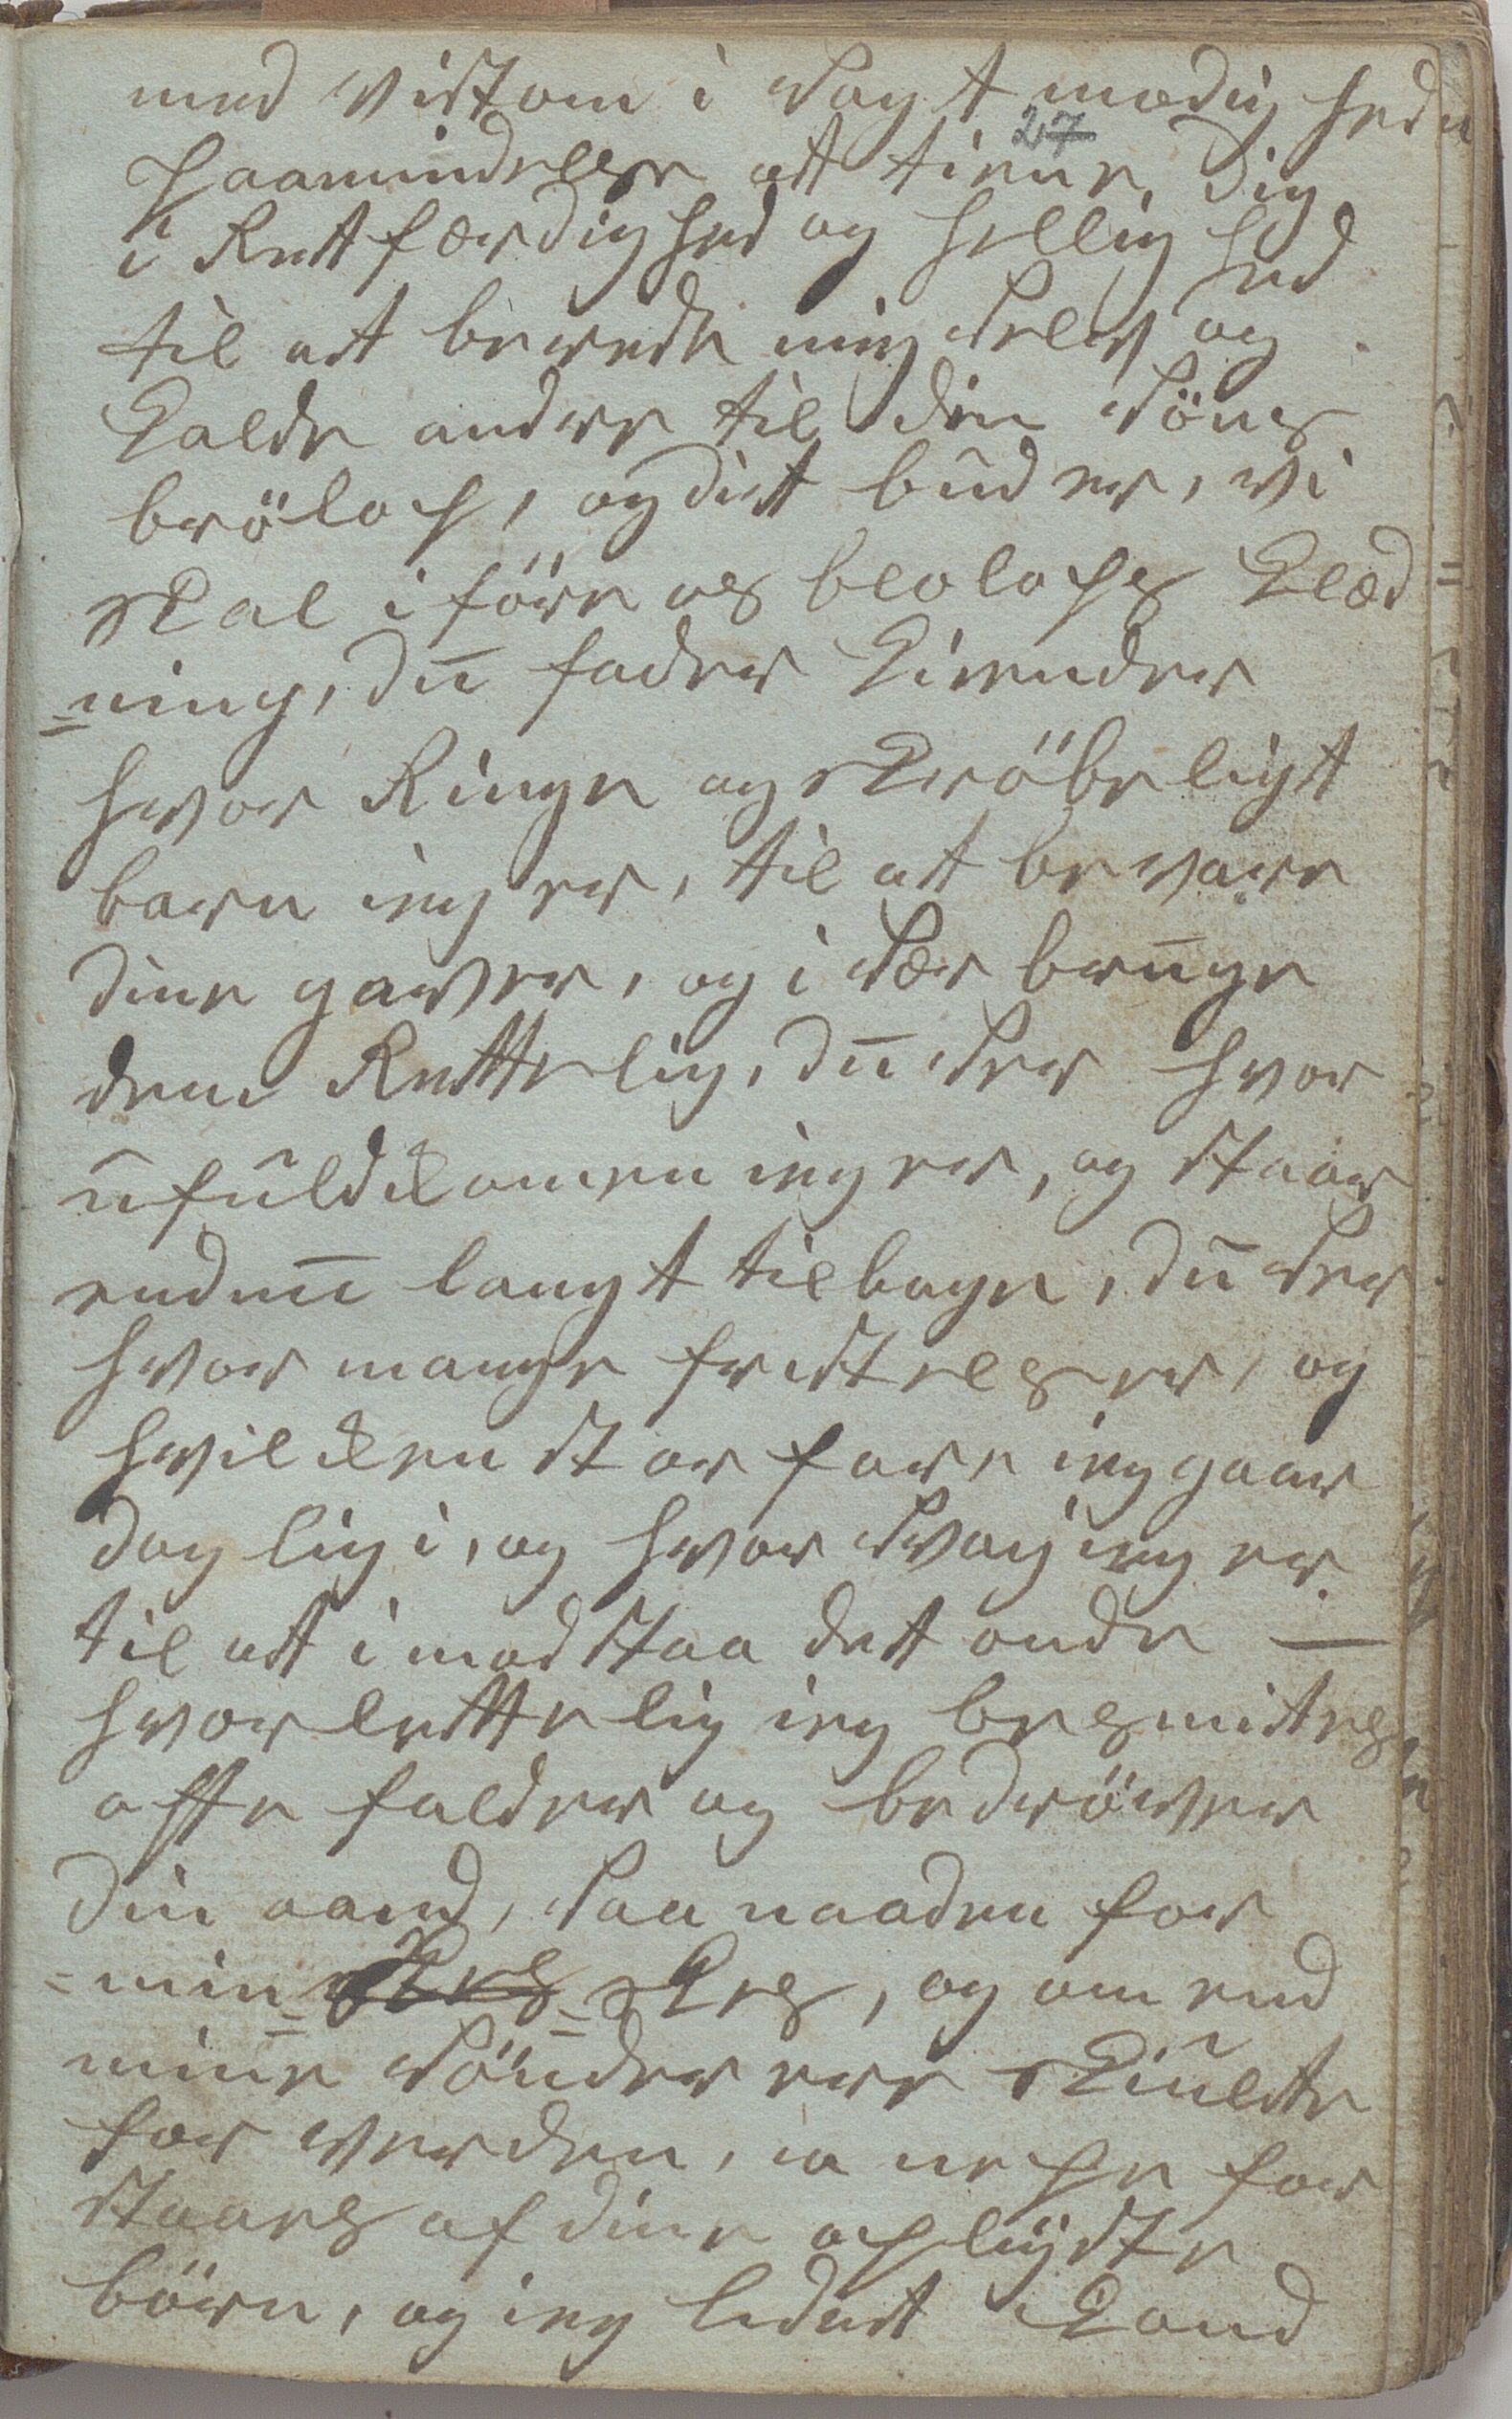 med vistom i Sagt modig hedn
27
Paamindelse att tiene dig
i Rettfærdighed og hellig hed
til att berede mig Selv og
Kalde andre til din Söns
brölop, og ditt bud er, vi
skal i före os bolops klæd
=ning, du fader kiender
hvor Ringe og skröbeligt
barn ieg er, til att bevare
dine gaver, og i Sær bruge
dem Rettelig, du Ser hvor
ufuldkomen ieg er, og staar
endnu langt tilbage, du Ser
hvor mange fristelser, og
hvilken stor fare ieg gaar
daglig i, og hvor Svag ieg er
til att imodstaa dett onde —
hvor lettelig ieg besmites
offte falder og bedröver
din aand, Saa naaden for
=min= =skes, og om end
mine Sönder ere skiulte
for verden, ia icke for
staaes af dine oplyste
börn, og ieg lidett kand